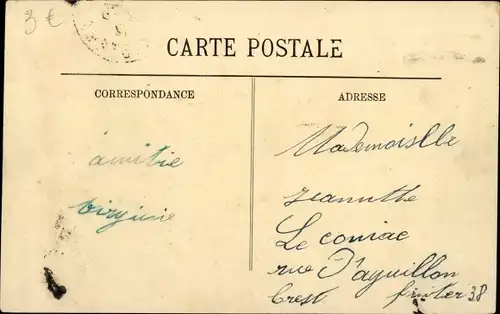 3 €
CARTE POSTALE
CORRESPONDANCE
ADRESSE
amitie
Virginie
Mademoiselle
Jeannette
Le corniac
rue D'aguillon
Brest finister 38